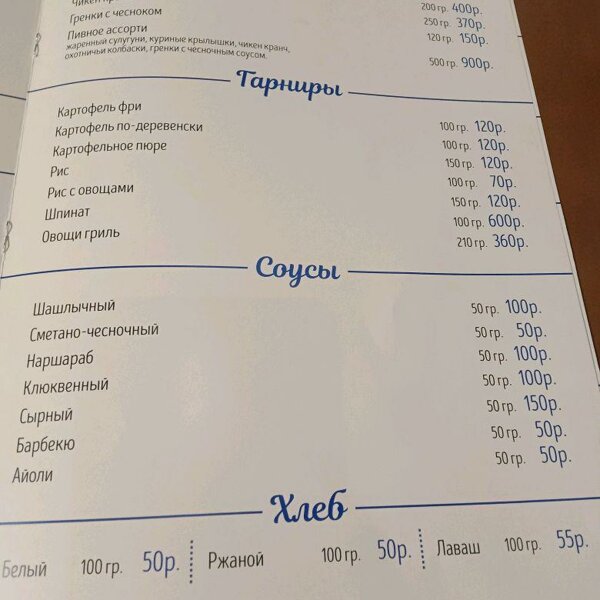 200 гр. 400р.
Чикен 250 гр. 370р.
Гренки с чесноком 120 гр. 150р.
Пивное ассорти
жаренный сулугуни, куриные крылышки, чикен кранч,
охотничьи колбаски, гренки с чесночным соусом. 500 гр. 900р.
Тарниры
Картофель фри 100 гр. 120р.
Картофель по-деревенски 100 гр. 120р.
Картофельное пюре 150 гр. 120р.
Рис 100 гр. 70р.
Рис с овощами 150 гр. 120р.
Шпинат 100 гр. 600р.
Овощи гриль 210 гр. 360р.
Соусы
Шашлычный 50 гр. 100р.
Сметано-чесночный 50 гр. 50р.
Наршараб 50 гр. 100р.
Клюквенный 50 гр. 100р.
Сырный 50 гр. 150р.
Барбекю 50 гр. 50р.
Айоли 50 гр. 50р.
Хлеб
Белый 100 гр. 50р. Ржаной 100 гр. 50р. Лаваш 100 гр. 55р.